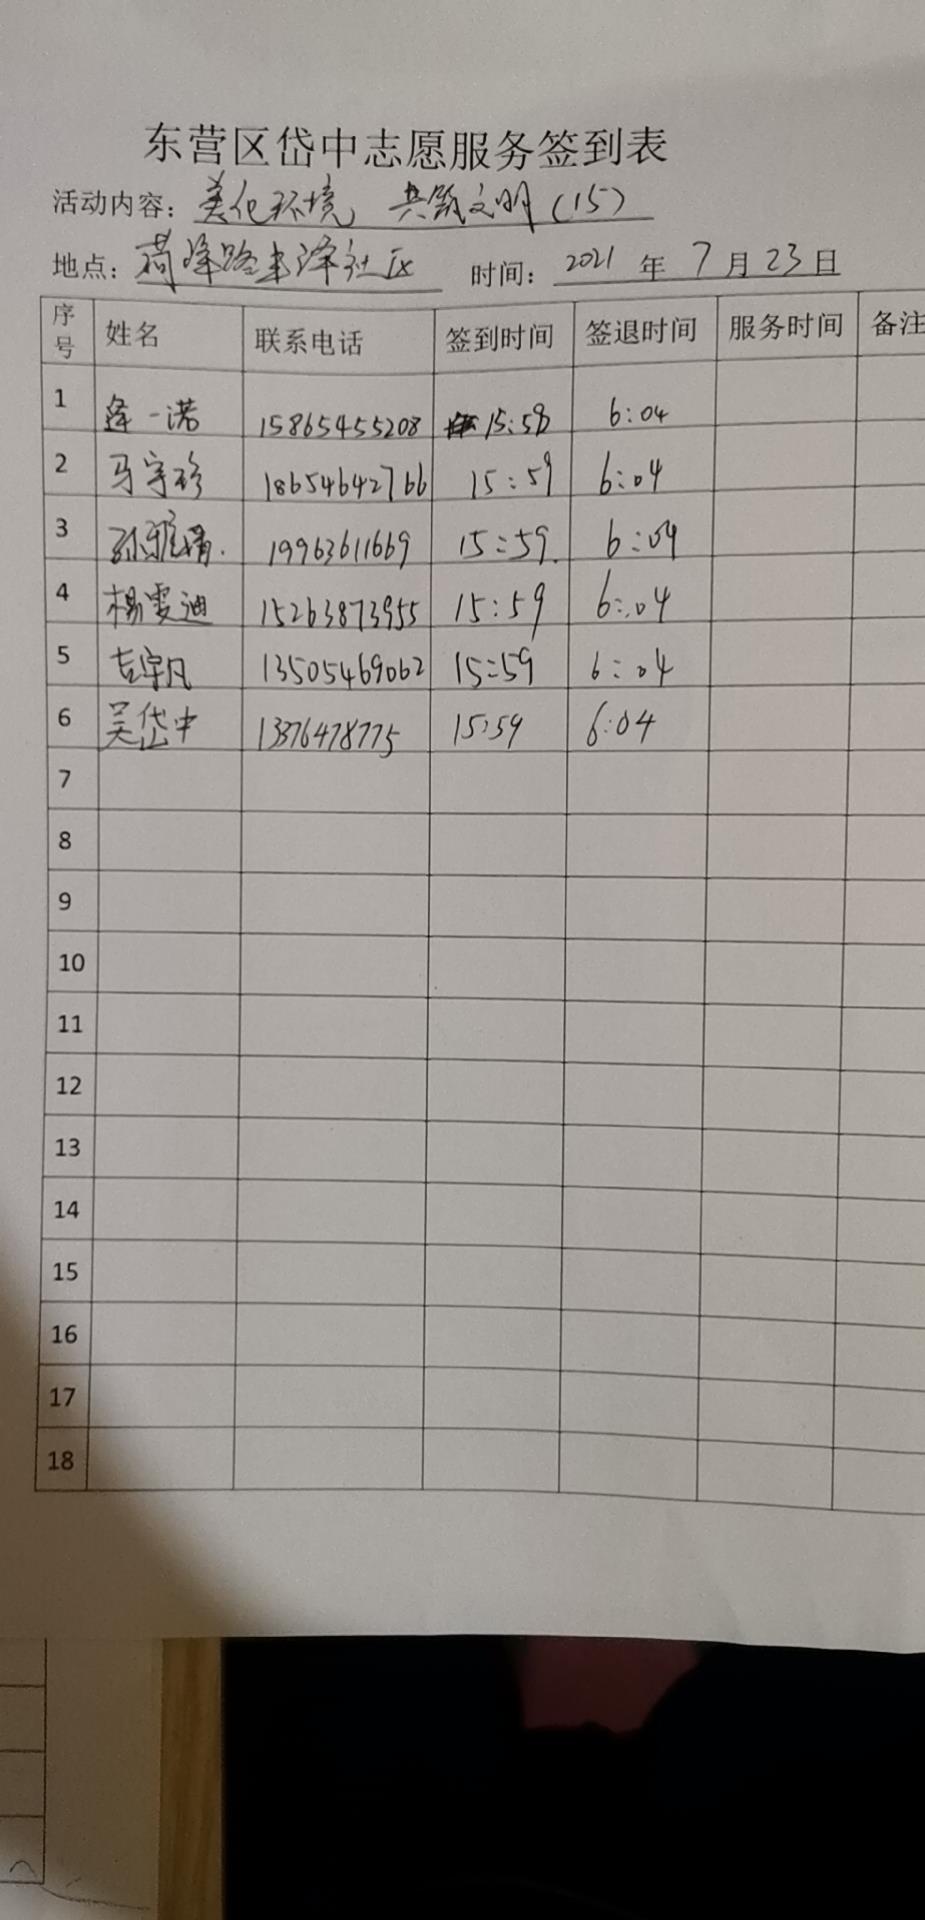 东营区岱中志愿服务签到表
活动内容: 美化环境 共筑文明(15)
地点: 荷泽路丰泽社区 时间: 2021 年 7 月 23 日
序号 姓名 联系电话 签到时间 签退时间 服务时间 备注
1 逄一诺 15865455208 15:59 6:04
2 马宇珍 18654642766 15:59 6:04
3 孙雅靖. 19963611669 15:59. 6:04
4 杨雯迪 15263873955 15:59 6:04
5 吉宇凡 13505469062 15:59 6:04
6 吴岱中 15:59 6:04
7
8
9
10
11
12
13
14
15
16
17
18